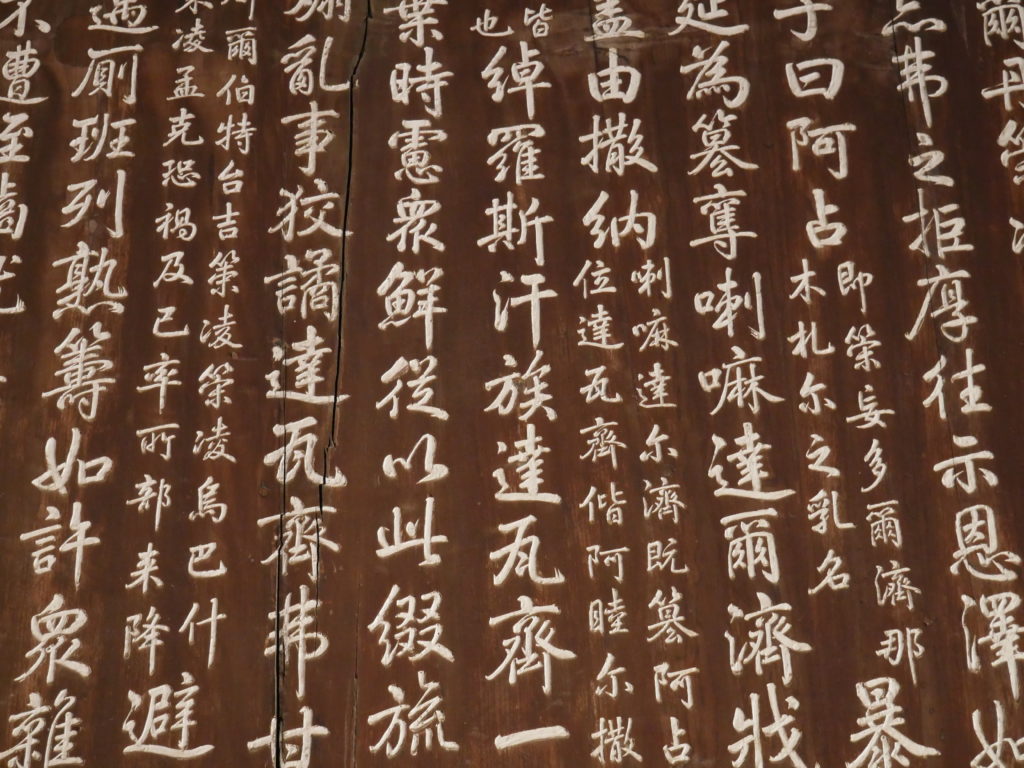 爾丹策
弗之拒厚往示恩澤如
子曰阿占
即策妄多爾濟那
木札尔之乳名
暴
延為篡奪喇嘛達爾濟戕
盖由撒納
喇嘛達尔濟既篡阿占
位達瓦齊偕阿睦尔撒
皆
也
綽羅斯汗族達瓦齊一
葉時慮衆鮮從以此綴旒
亂事狡譎達瓦齊弗甘
爾伯特台吉策凌策凌烏巴什
凌孟克恐禍及己率所部来降
避
厠班列熟籌如許衆雜
遭至